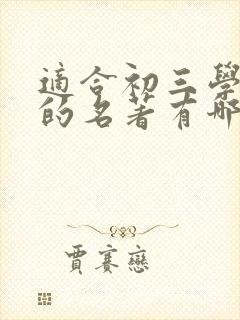 適合初三學
的名著有哪
賈賽戀